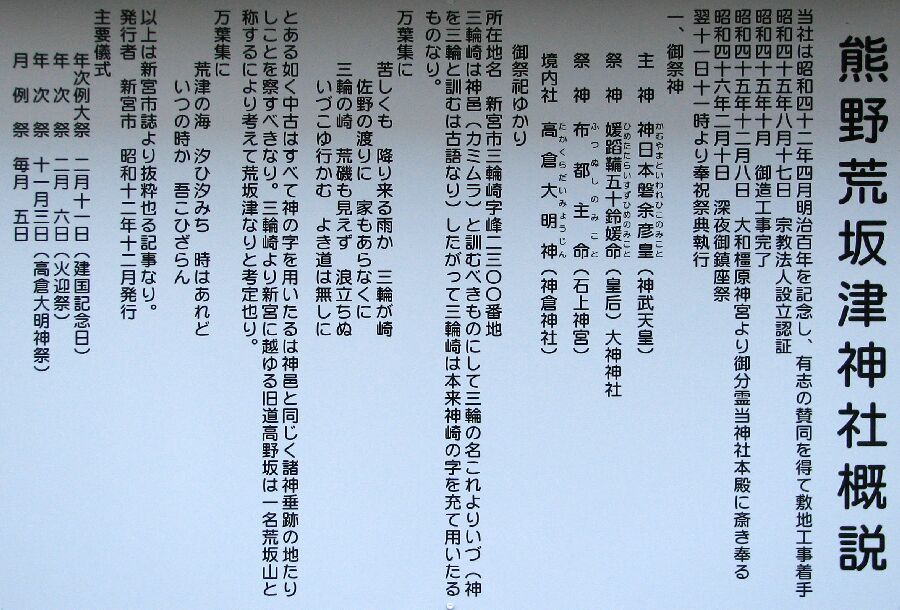 熊野荒坂津神社概説
当社は昭和四十二年四月明治百年を記念し、有志の賛同を得て敷地工事着手
昭和四十五年八月十七日 宗教法人設立認証
昭和四十五年十月 御造工事完了
昭和四十五年十二月八日 大和橿原神宮より御分霊当神社本殿に斎き奉る
昭和四十六年二月十日 深夜御鎮座祭
翌十一日十一時より奉祝祭典執行
一、御祭神
主神 神日本磐余彦皇（神武天皇）
かむやまといわれひこのみこと
祭神 媛蹈鞴五十鈴媛命（皇后）大神神社
ひめたたらいすずひめのみこと
祭神 布都主命（石上神宮）
ふつぬしのみこと
境内社 高倉大明神（神倉神社）
たかくらだいみょうじん
御祭祀ゆかり
所在地名 新宮市三輪崎字峰二三〇〇番地
三輪崎は神邑（カミムラ）と訓むべきものにして三輪の名これよりいづ（神
を三輪と訓むは古語なり）したがって三輪崎は本来神崎の字を充て用いたる
ものなり。
万葉集に
苦しくも 降り来る雨か 三輪が崎
佐野の渡りに 家もあらなくに
三輪の崎 荒磯も見えず 浪立ちぬ
いづこゆ行かむ よき道は無しに
とある如く中古はすべて神の字を用いたるは神邑と同じく諸神垂跡の地たり
しことを察すべきなり。三輪崎より新宮に越ゆる旧道高野坂は一名荒坂山と
称するにより考えて荒坂津なりと考定也り。
万葉集に
荒津の海 汐ひ汐みち 時はあれど
いつの時か 吾こひざらん
以上は新宮市誌より抜粋也る記事なり。
発行者 新宮市 昭和十二年十二月発行
主要儀式
年次例大祭 二月十一日（建国記念日）
年次祭 二月六日（火迎祭）
年次祭 十一月三日（高倉大明神祭）
月例祭 毎月 五日